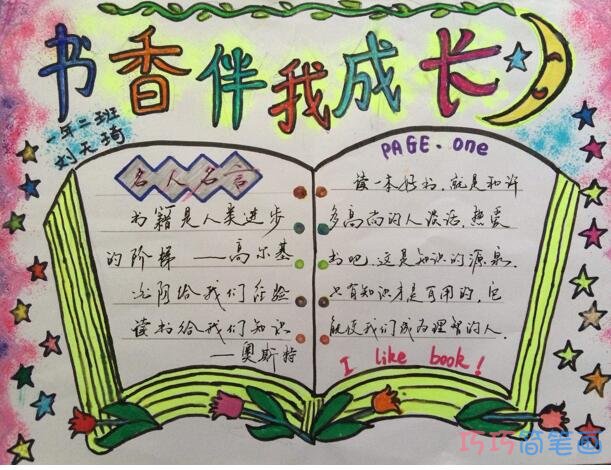 书香伴我成长
一年二班
刘天琦
名人名言
书籍是人类进步
的阶梯——高尔基
光阴给我们经验
读书给我们知识
——奥斯特
PAGE.one
读一本好书,就是和许
多高尚的人谈话,热爱
书吧,这是知识的源泉,
只有知识才是有用的,它
能使我们成为理智的人.
I like book!
巧巧简笔画